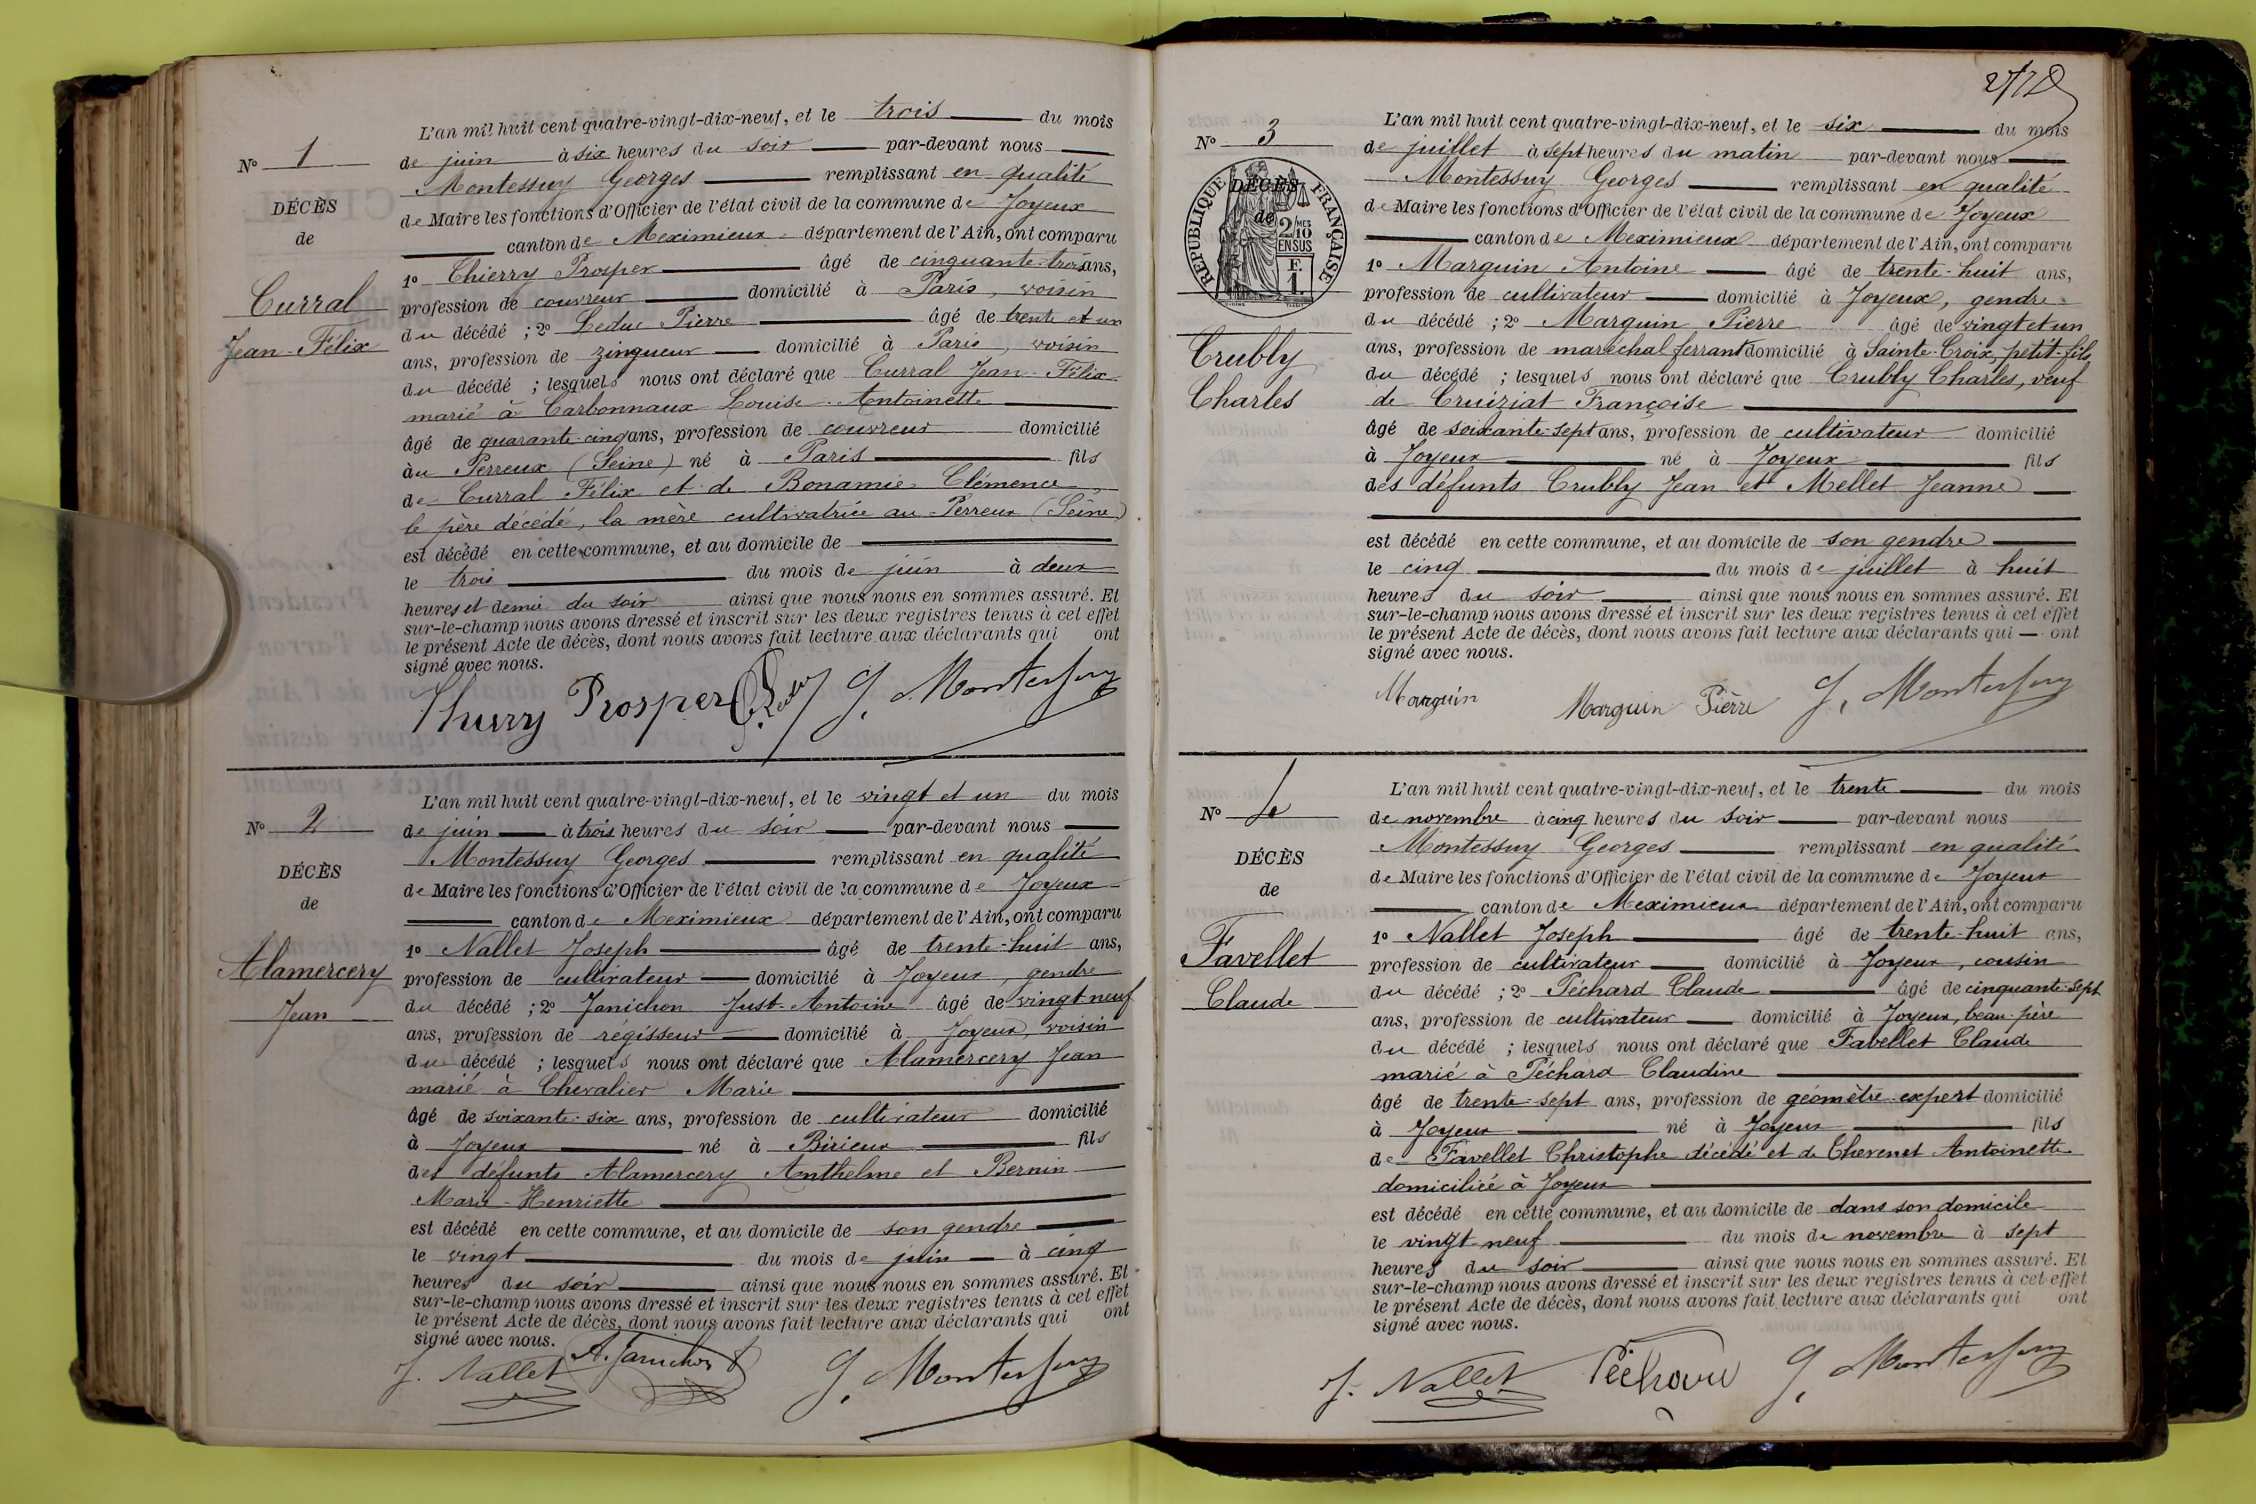 L'an mil huit cent quatre-vingt-dix-neuf, et le trois du mois
N° 1
de juin à six heures du soir par-devant nous
Montessuy Georges remplissant en qualité
DÉCÈS
de Maire les fonctions d'Officier de l'état civil de la commune de Joyeux
de
canton de Meximieux département de l'Ain, ont comparu
1° Thierry Prosper âgé de cinquante-trois ans,
Curral
profession de couvreur domicilié à Paris, voisin
du décédé ; 2° Leduc Pierre âgé de trente et un
Jean-Félix
ans, profession de zingueur domicilié à Paris, voisin
du décédé ; lesquels nous ont déclaré que Curral Jean-Félix
marié à Carbonnaux Louise-Antoinette
âgé de quarante-cinq ans, profession de couvreur domicilié
au Perreux (Seine) né à Paris fils
de Curral Félix et de Bonamie Clémence,
le père décédé, la mère cultivatrice au Perreux (Seine)
est décédé en cette commune, et au domicile de
le trois du mois de juin à deux
heures et demie du soir ainsi que nous nous en sommes assuré. Et
sur-le-champ nous avons dressé et inscrit sur les deux registres tenus à cet effet
le présent Acte de décès, dont nous avons fait lecture aux déclarants qui ont
signé avec nous.
Thierry Prosper G. Montessuy
L'an mil huit cent quatre-vingt-dix-neuf, et le vingt et un du mois
N° 2
de juin à trois heures du soir par-devant nous
Montessuy Georges remplissant en qualité
DÉCÈS
de Maire les fonctions d'Officier de l'état civil de la commune de Joyeux
de
canton de Meximieux département de l'Ain, ont comparu
1° Nallet Joseph âgé de trente-huit ans,
Alamercery
profession de cultivateur domicilié à Joyeux, gendre
du décédé ; 2° Janichon Just-Antoine âgé de vingt-neuf
Jean
ans, profession de régisseur domicilié à Joyeux, voisin
du décédé ; lesquels nous ont déclaré que Alamercery Jean
marié à Chevalier Marie
âgé de soixante-six ans, profession de cultivateur domicilié
à Joyeux né à Birieux fils
des défunts Alamercery Anthelme et Bernin
Marie-Henriette
est décédé en cette commune, et au domicile de son gendre
le vingt du mois de juin à cinq
heures du soir ainsi que nous nous en sommes assuré. Et
sur-le-champ nous avons dressé et inscrit sur les deux registres tenus à cet effet
le présent Acte de décès, dont nous avons fait lecture aux déclarants qui ont
signé avec nous.
J. Nallet A. Janichon G. Montessuy
L'an mil huit cent quatre-vingt-dix-neuf, et le six du mois
N° 3
de juillet à sept heures du matin par-devant nous
Montessuy Georges remplissant en qualité
RÉPUBLIQUE FRANÇAISE
DÉCÈS
de
2 MES
10
EN SUS
F.
1.
de Maire les fonctions d'Officier de l'état civil de la commune de Joyeux
canton de Meximieux département de l'Ain, ont comparu
1° Marguin Antoine âgé de trente-huit ans,
profession de cultivateur domicilié à Joyeux, gendre
du décédé ; 2° Marguin Pierre âgé de vingt et un
Crubly
ans, profession de maréchal ferrant domicilié à Sainte-Croix, petit-fils
du décédé ; lesquels nous ont déclaré que Crubly Charles, veuf
Charles
de Cruiziat Françoise
âgé de soixante-sept ans, profession de cultivateur domicilié
à Joyeux né à Joyeux fils
des défunts Crubly Jean et Mellet Jeanne
est décédé en cette commune, et au domicile de son gendre
le cinq du mois de juillet à huit
heures du soir ainsi que nous nous en sommes assuré. Et
sur-le-champ nous avons dressé et inscrit sur les deux registres tenus à cet effet
le présent Acte de décès, dont nous avons fait lecture aux déclarants qui ont
signé avec nous.
Marguin Marguin Pierre G. Montessuy
L'an mil huit cent quatre-vingt-dix-neuf, et le trente du mois
N° 4
de novembre à cinq heures du soir par-devant nous
Montessuy Georges remplissant en qualité
DÉCÈS
de Maire les fonctions d'Officier de l'état civil de la commune de Joyeux
de
canton de Meximieux département de l'Ain, ont comparu
1° Nallet Joseph âgé de trente-huit ans,
Favellet
profession de cultivateur domicilié à Joyeux, cousin
du décédé ; 2° Péchard Claude âgé de cinquante-sept
Claude
ans, profession de cultivateur domicilié à Joyeux, beau-père
du décédé ; lesquels nous ont déclaré que Favellet Claude
marié à Péchard Claudine
âgé de trente-sept ans, profession de géomètre-expert domicilié
à Joyeux né à Joyeux fils
de Favellet Christophe décédé et de Chevenet Antoinette
domiciliée à Joyeux
est décédé en cette commune, et au domicile de dans son domicile
le vingt-neuf du mois de novembre à sept
heures du soir ainsi que nous nous en sommes assuré. Et
sur-le-champ nous avons dressé et inscrit sur les deux registres tenus à cet effet
le présent Acte de décès, dont nous avons fait lecture aux déclarants qui ont
signé avec nous.
J. Nallet Péchard G. Montessuy